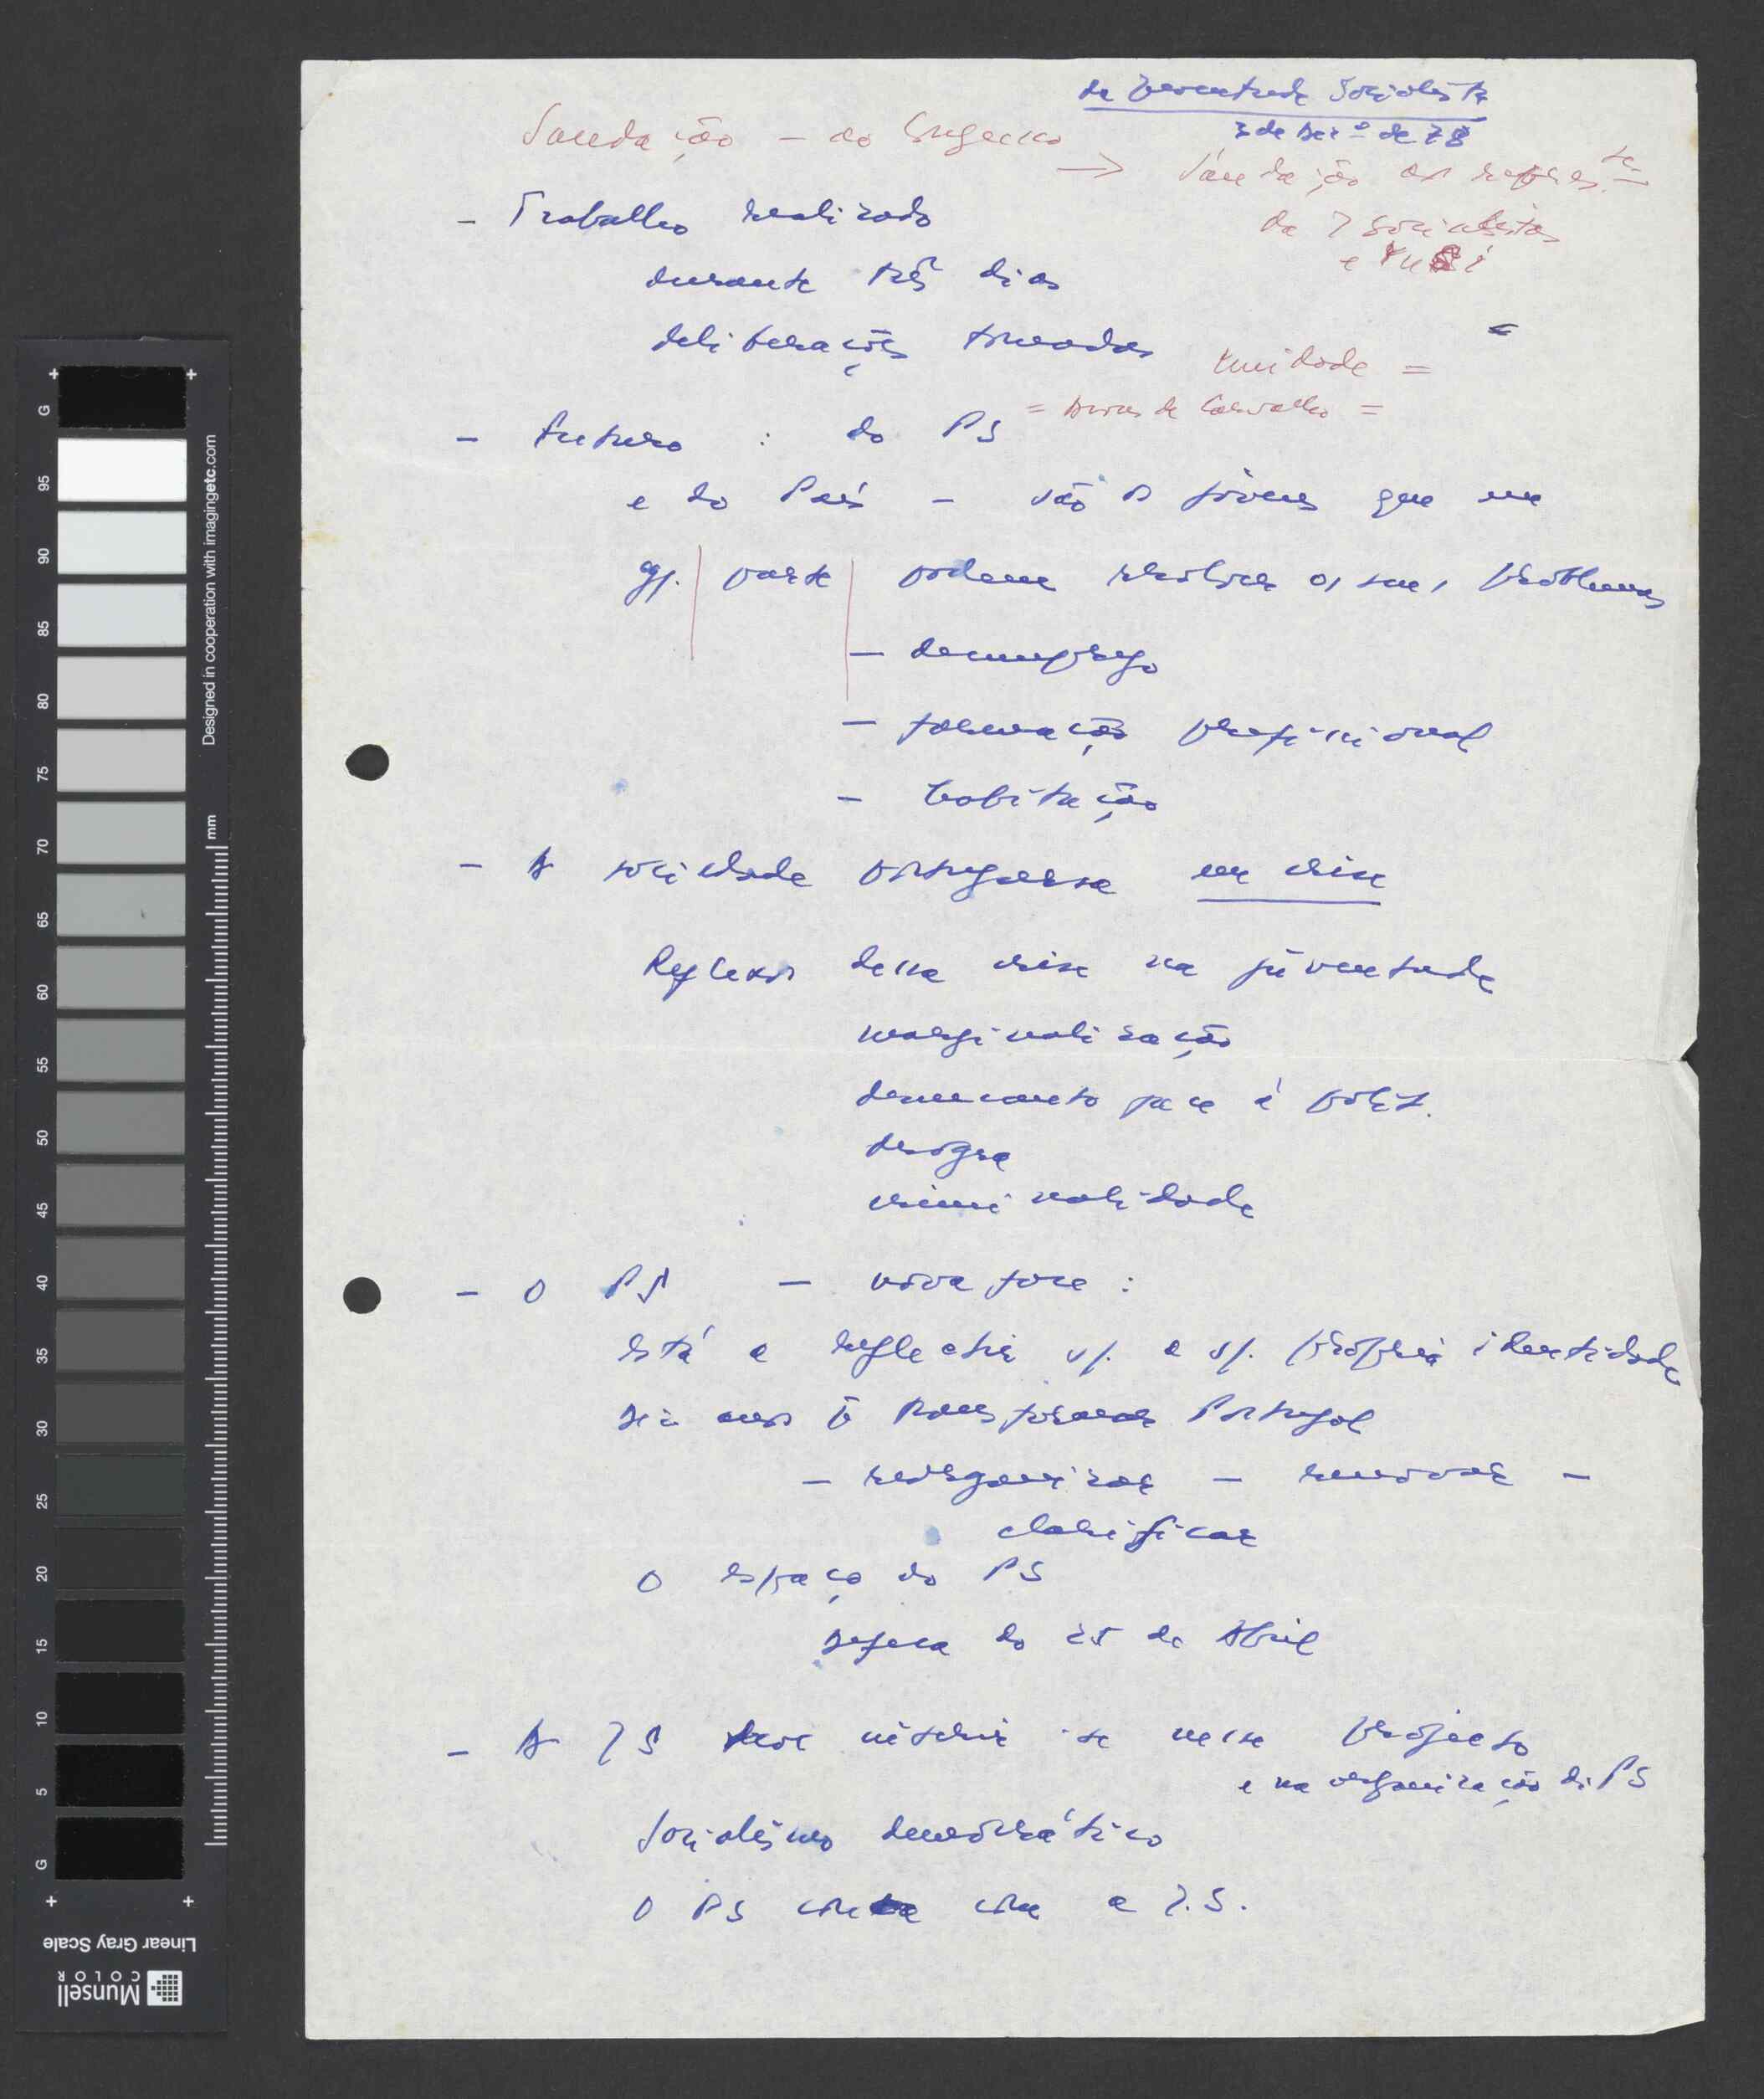 da Juventude Socialista
3 de Dez.º de 78
Saudação – ao Congresso
→ Saudação aos represtes
da J Socialistas
e IUSY
– Trabalho realizado
durante três dias
deliberações tomadas
Unidade =
= Aires de Carvalho =
– Futuro : do PS
e do País – são os jóvens que em
gr. parte podem resolver os seus problemas
– desemprego
– formação profissional
– habitação
– A sociedade portuguesa em crise
Reflexos dessa crise na juventude
marginalização
desencanto face à polít.
droga
criminalidade
– O PS – nova fase :
está a reflectir s/. a s/. própria identidade
Dez anos p. transformar Portugal
– reorganizar – renovar –
clarificar
O espaço do PS
Defesa do 25 de Abril
– A JS deve inserir-se nesse projecto
e na organização do PS
Socialismo democrático
O PS conta com a J.S.
G 95 90 85 80 75 70 65 60 55 50 45 40 35 30 25 20 15 10 5 G
Designed in cooperation with imagingetc.com
mm
Linear Gray Scale
Munsell
COLOR